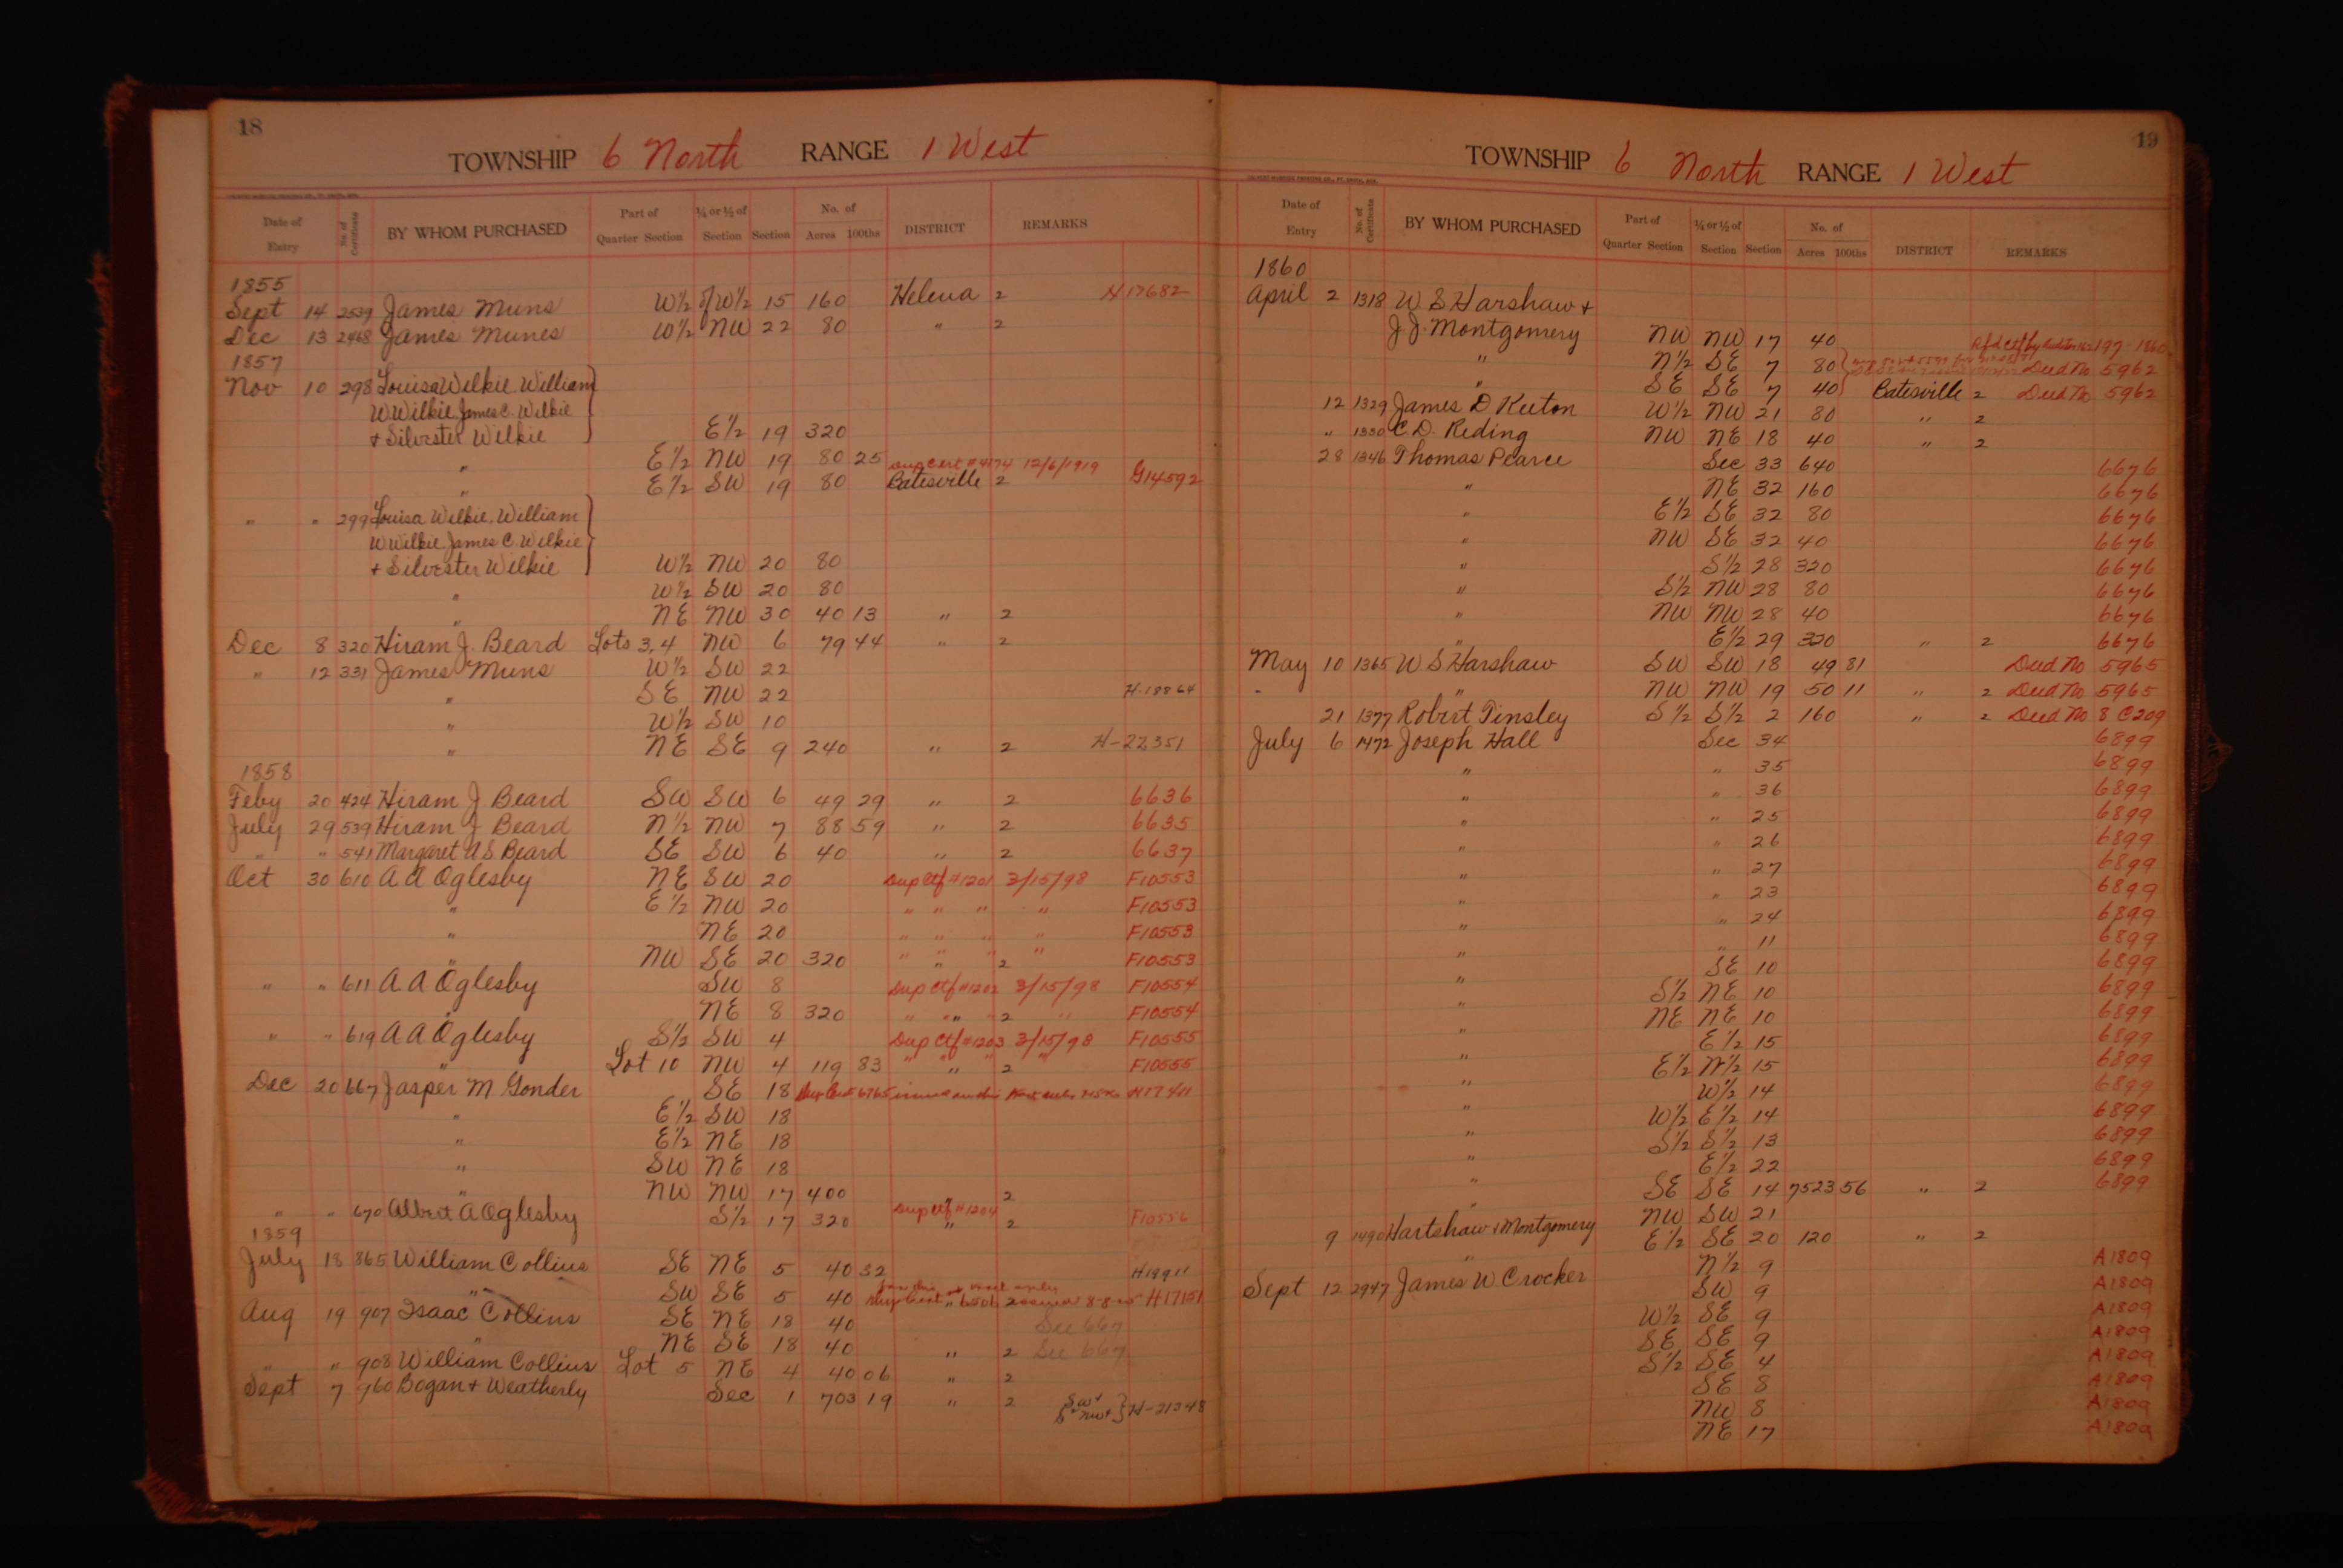 18
TOWNSHIP 6 North RANGE 1 West
Date of Entry No. of Certificate BY WHOM PURCHASED Part of Quarter Section ¼ or ½ of Section Section No. of Acres 100ths DISTRICT REMARKS
1855
Sept 14 2539 James Muns W½ of W½ 15 160 Helena 2 H17682
Dec 13 2468 James Munes W½ NW 22 80 " 2
1857
Nov 10 298 Louisa Wilkie William
W Wilkie James C. Wilkie
+ Silvester Wilkie E½ 19 320
" E½ NW 19 80 25 Dup Cert # 4174 12/6/1919
" E½ SW 19 80 Batesville 2 G14592
" " 299 Louisa Wilkie, William
W Wilkie James C. Wilkie
+ Silvester Wilkie W½ NW 20 80
" W½ SW 20 80
" NE NW 30 40 13 " 2
Dec 8 320 Hiram J. Beard Lots 3,4 NW 6 79 44 " 2
" 12 331 James Muns W½ SW 22
" SE NW 22 H-18864
" W½ SW 10
" NE SE 9 240 " 2 H-22351
1858
Feby 20 424 Hiram J Beard SW SW 6 49 29 " 2 6636
July 29 539 Hiram J Beard N½ NW 7 88 59 " 2 6635
" " 541 Margaret A S. Beard SE SW 6 40 " 2 6637
Oct 30 610 A A Oglesby NE SW 20 Dup Ctf #1201 3/15/98 F10553
" E½ NW 20 " " " " F10553
" NE 20 " " " " F10553
" NW SE 20 320 " " " 2 " F10553
" " 611 A. A Oglesby SW 8 Dup Ctf #1202 3/15/98 F10554
" NE 8 320 " " " 2 " F10554
" " 619 A A Oglesby S½ SW 4 Dup Ctf #1203 3/15/98 F10555
" Lot 10 NW 4 119 83 " " " 2 " F10555
Dec 20 667 Jasper M. Gonder SE 18 Dup Cert 6765 issued H17411
" E½ SW 18
" E½ NE 18
" SW NE 18
" NW NW 17 400 " 2
" " 670 Albert A Oglesby S½ 17 320 Dup Ctf #1204 " 2 F10556
1859
July 18 865 William Collins SE NE 5 40 32 H18911
" SW SE 5 40 Dup Cert 6506 2 issued 8-8-25 H17151
Aug 19 907 Isaac Collins SE NE 18 40 See 667
" NE SE 18 40 " 2 See 667
" " 908 William Collins Lot 5 NE 4 40 06 " 2
Sept 7 960 Bogan + Weatherly Sec 1 703 19 " 2 H-21348
19
TOWNSHIP 6 North RANGE 1 West
Date of Entry No. of Certificate BY WHOM PURCHASED Part of Quarter Section ¼ or ½ of Section Section No. of Acres 100ths DISTRICT REMARKS
1860
April 2 1318 W. S Harshaw +
J J. Montgomery NW NW 17 40
" N½ SE 7 80 Deed No 5962
" SE SE 7 40 Batesville 2 Deed No 5962
12 1329 James D Keeton W½ NW 21 80 " 2
" 1330 C. D. Reding NW NE 18 40 " 2
28 1346 Thomas Pearce Sec 33 640 6676
" NE 32 160 6676
" E½ SE 32 80 6676
" NW SE 32 40 6676
" S½ 28 320 6676
" S½ NW 28 80 6676
" NW NW 28 40 6676
" E½ 29 320 " 2 6676
May 10 1365 W S Harshaw SW SW 18 49 81 Deed No 5965
" NW NW 19 50 11 " 2 Deed No 5965
21 1377 Robert Tinsley S½ S½ 2 160 " 2 Deed No 8 C209
July 6 1472 Joseph Hall Sec 34 6899
" " 35 6899
" " 36 6899
" " 25 6899
" " 26 6899
" " 27 6899
" " 23 6899
" " 24 6899
" " 11 6899
" SE 10 6899
" S½ NE 10 6899
" NE NE 10 6899
" E½ 15 6899
" E½ W½ 15 6899
" W½ 14 6899
" W½ E½ 14 6899
" S½ S½ 13 6899
" E½ 22 6899
" SE SE 14 7523 56 " 2 6899
9 1490 Hartshaw + Montgomery NW SW 21
" E½ SE 20 120 " 2
Sept 12 2947 James W Crocker N½ 9 A1809
SW 9 A1809
W½ SE 9 A1809
SE SE 9 A1809
S½ SE 4 A1809
SE 8 A1809
NW 8 A1809
NE 17 A1809